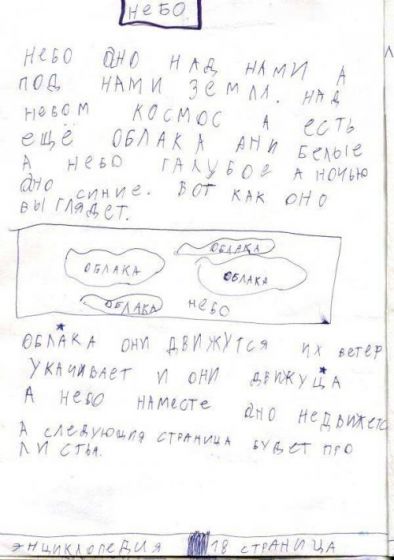 НЕБО
НЕБО ОНО НАД НАМИ А
ПОД НАМИ ЗЕМЛЯ. НАД
НЕБОМ КОСМОС А ЕСТЬ
ЕЩЁ ОБЛАКА АНИ БЕЛЫЕ
А НЕБО ГАЛУБОЕ А НОЧЬЮ
ОНО СИНИЕ. ВОТ КАК ОНО
ВЫГЛЯДЕТ.
ОБЛАКА
ОБЛАКА
ОБЛАКА
ОБЛАКА
НЕБО
ОБЛАКА ОНИ ДВИЖУТСЯ ИХ ВЕТЕР
УКАЧИВАЕТ И ОНИ ДВИЖУЦА
А НЕБО НАМЕСТЕ ОНО НЕДВИЖЕТС
А СЛЕДУЮЩИЯ СТРАНИЦА БУДЕТ ПРО
ЛИСТЬЯ.
ЭНЦИКЛОПЕДИЯ 18 СТРАНИЦА